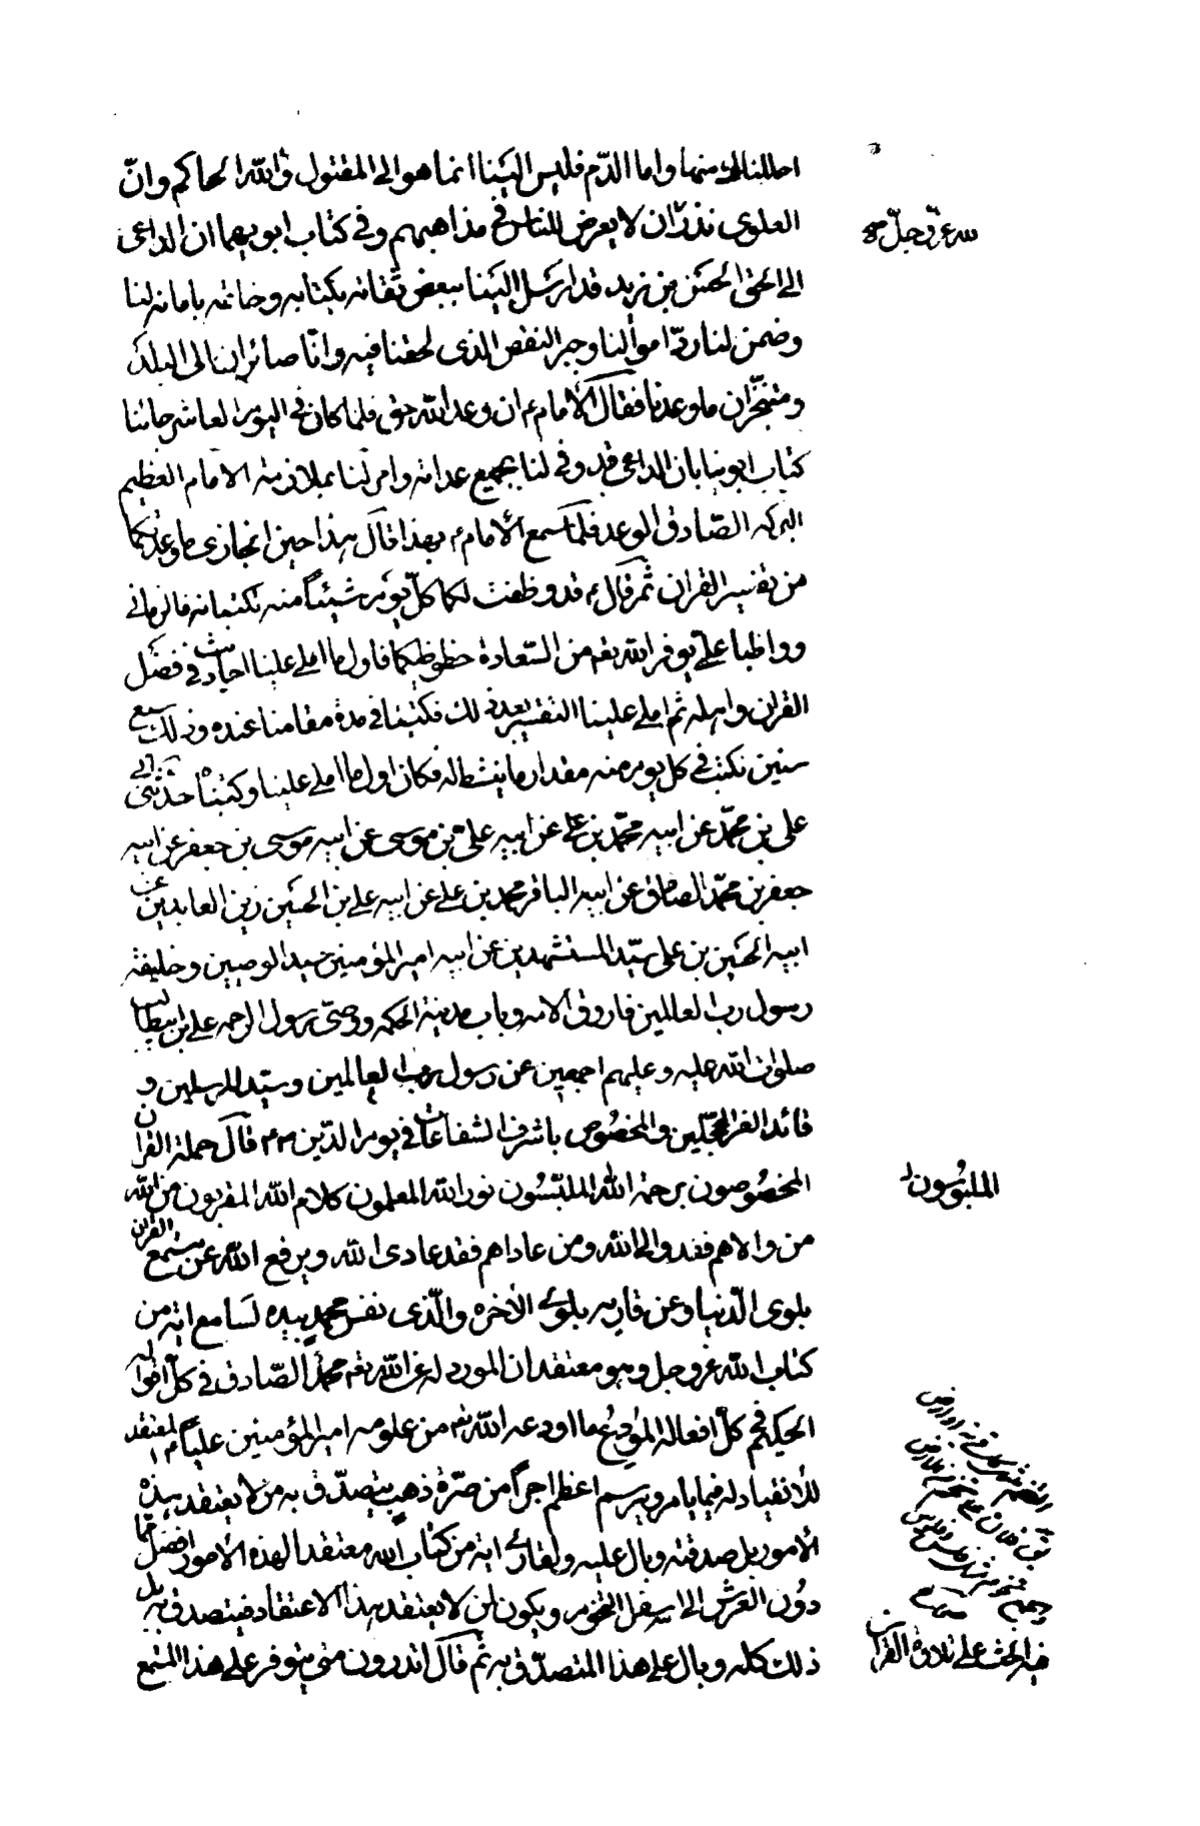 احللناك منها واما الدّم فليس الينا انما هو الى المقتول والله الحاكم وانّ
العلوى نذر ان لا يعرض للناس فى مذاهبهم وفى كتاب ابويهما ان الداعى
لله عزّ وجلّ
الى الحق الحسن بن زيد قد ارسل الينا ببعض ثقاته بكتابه وخاتمه بامانه لنا
وضمن لنا ردّ اموالنا وجبر النقص الذى لحقنا فيه وانّا صائران الى البلد
ومتنجّزان ما وعدنا فقال الامام ع ان وعد الله حق فلما كان فى اليوم العاشر جائنا
كتاب ابوينا بان الداعى قد وفى لنا بجميع عداته وامرنا بملازمة الامام العظيم
البركة الصّادق الوعد فلما سمع الامام ع بهذا قال هذا حين انجازى ما وعدتكما
من تفسير القران ثم قال ع قد وظفت لكما كلّ يوم شيئاً منه تكتبانه فالزمانى
وواظبا علىّ يوفر الله تعم من السّعادة حظوظكما فاول ما املى علينا احاديث فى فضل
القران واهله ثم املى علينا التفسير بعد ذلك فكتبنا فى مدة مقامنا عنده وذلك سبع
سنين نكتب فى كل يوم منه مقدار ما ينشط له فكان اول ما املى علينا وكتبناه حدّثنى ابى
على بن محمّد عن ابيه محمّد بن على عن ابيه علىّ بن موسى عن ابيه موسى بن جعفر عن ابيه
جعفر بن محمّد الصادق عن ابيه الباقر محمد بن على عن ابيه على بن الحسين زين العابدين عن
ابيه الحسين بن على سيّد المستشهدين عن ابيه امير المؤمنين سيد الوصيين وخليفة
رسول رب العالمين فاروق الامة وباب مدينة الحكمة ووصىّ رسول الرحمة على بن ابيطالب
صلوات الله عليه وعليهم اجمعين عن رسول رب العالمين وسيّد المرسلين و
قائد الغر المحجّلين والمخصُوص باشرف الشفاعات فى يوم الدّين صم قال حملة القران
المخصُوصون برحمة الله الملبّسُون نور الله المعلمون كلام الله المقربون من الله
الملبُوسُون
من والاهم فقد والى الله ومن عاداهم فقد عادى الله ويرفع الله عن مستمع القران
بلوى الدّنيا وعن قاريه بلوى الاخره والّذى نفس محمد بيده لسامع اية من
كتاب الله عز وجل وهو معتقد ان المورد له عن الله تعم محمّد الصّادق فى كلّ اقواله
الحكيم فى كلّ افعاله المُودِعُ ما اودعه الله تعم من علومه امير المؤمنين عليّاً ع المعتقد
للانقياد له فيما يامر ويرسم اعظم اجراً من صرّة ذهب يتصدّق به من لا يعتقد هذه
الامور بل صدقته وبال عليه ولقارئ اية من كتاب الله معتقدا لهذه الامور افضل ممّا
دوُن العرش الى اسفل التخوم ويكون لمن لا يعتقد هذا الاعتقاد فيتصدق به بل
ذلك كله وبال على هذا المتصدّق به ثم قال اتدرون متى يتوفر على هذا المستمع
فيه الحث على تلاوة القران